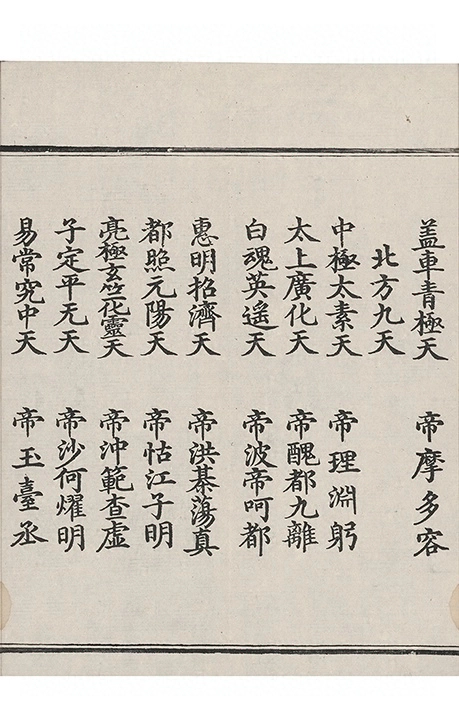 盖車青極天 帝摩多容
北方九天
中極太素天 帝理淵躬
太上廣化天 帝醜都九離
白魂英遥天 帝波帝呵都
惠明招濟天 帝洪棊蕩真
都照元陽天 帝怙江子明
亮極玄竺化靈天 帝沖範查虚
子定平无天 帝沙何燿明
易常究中天 帝玉臺丞